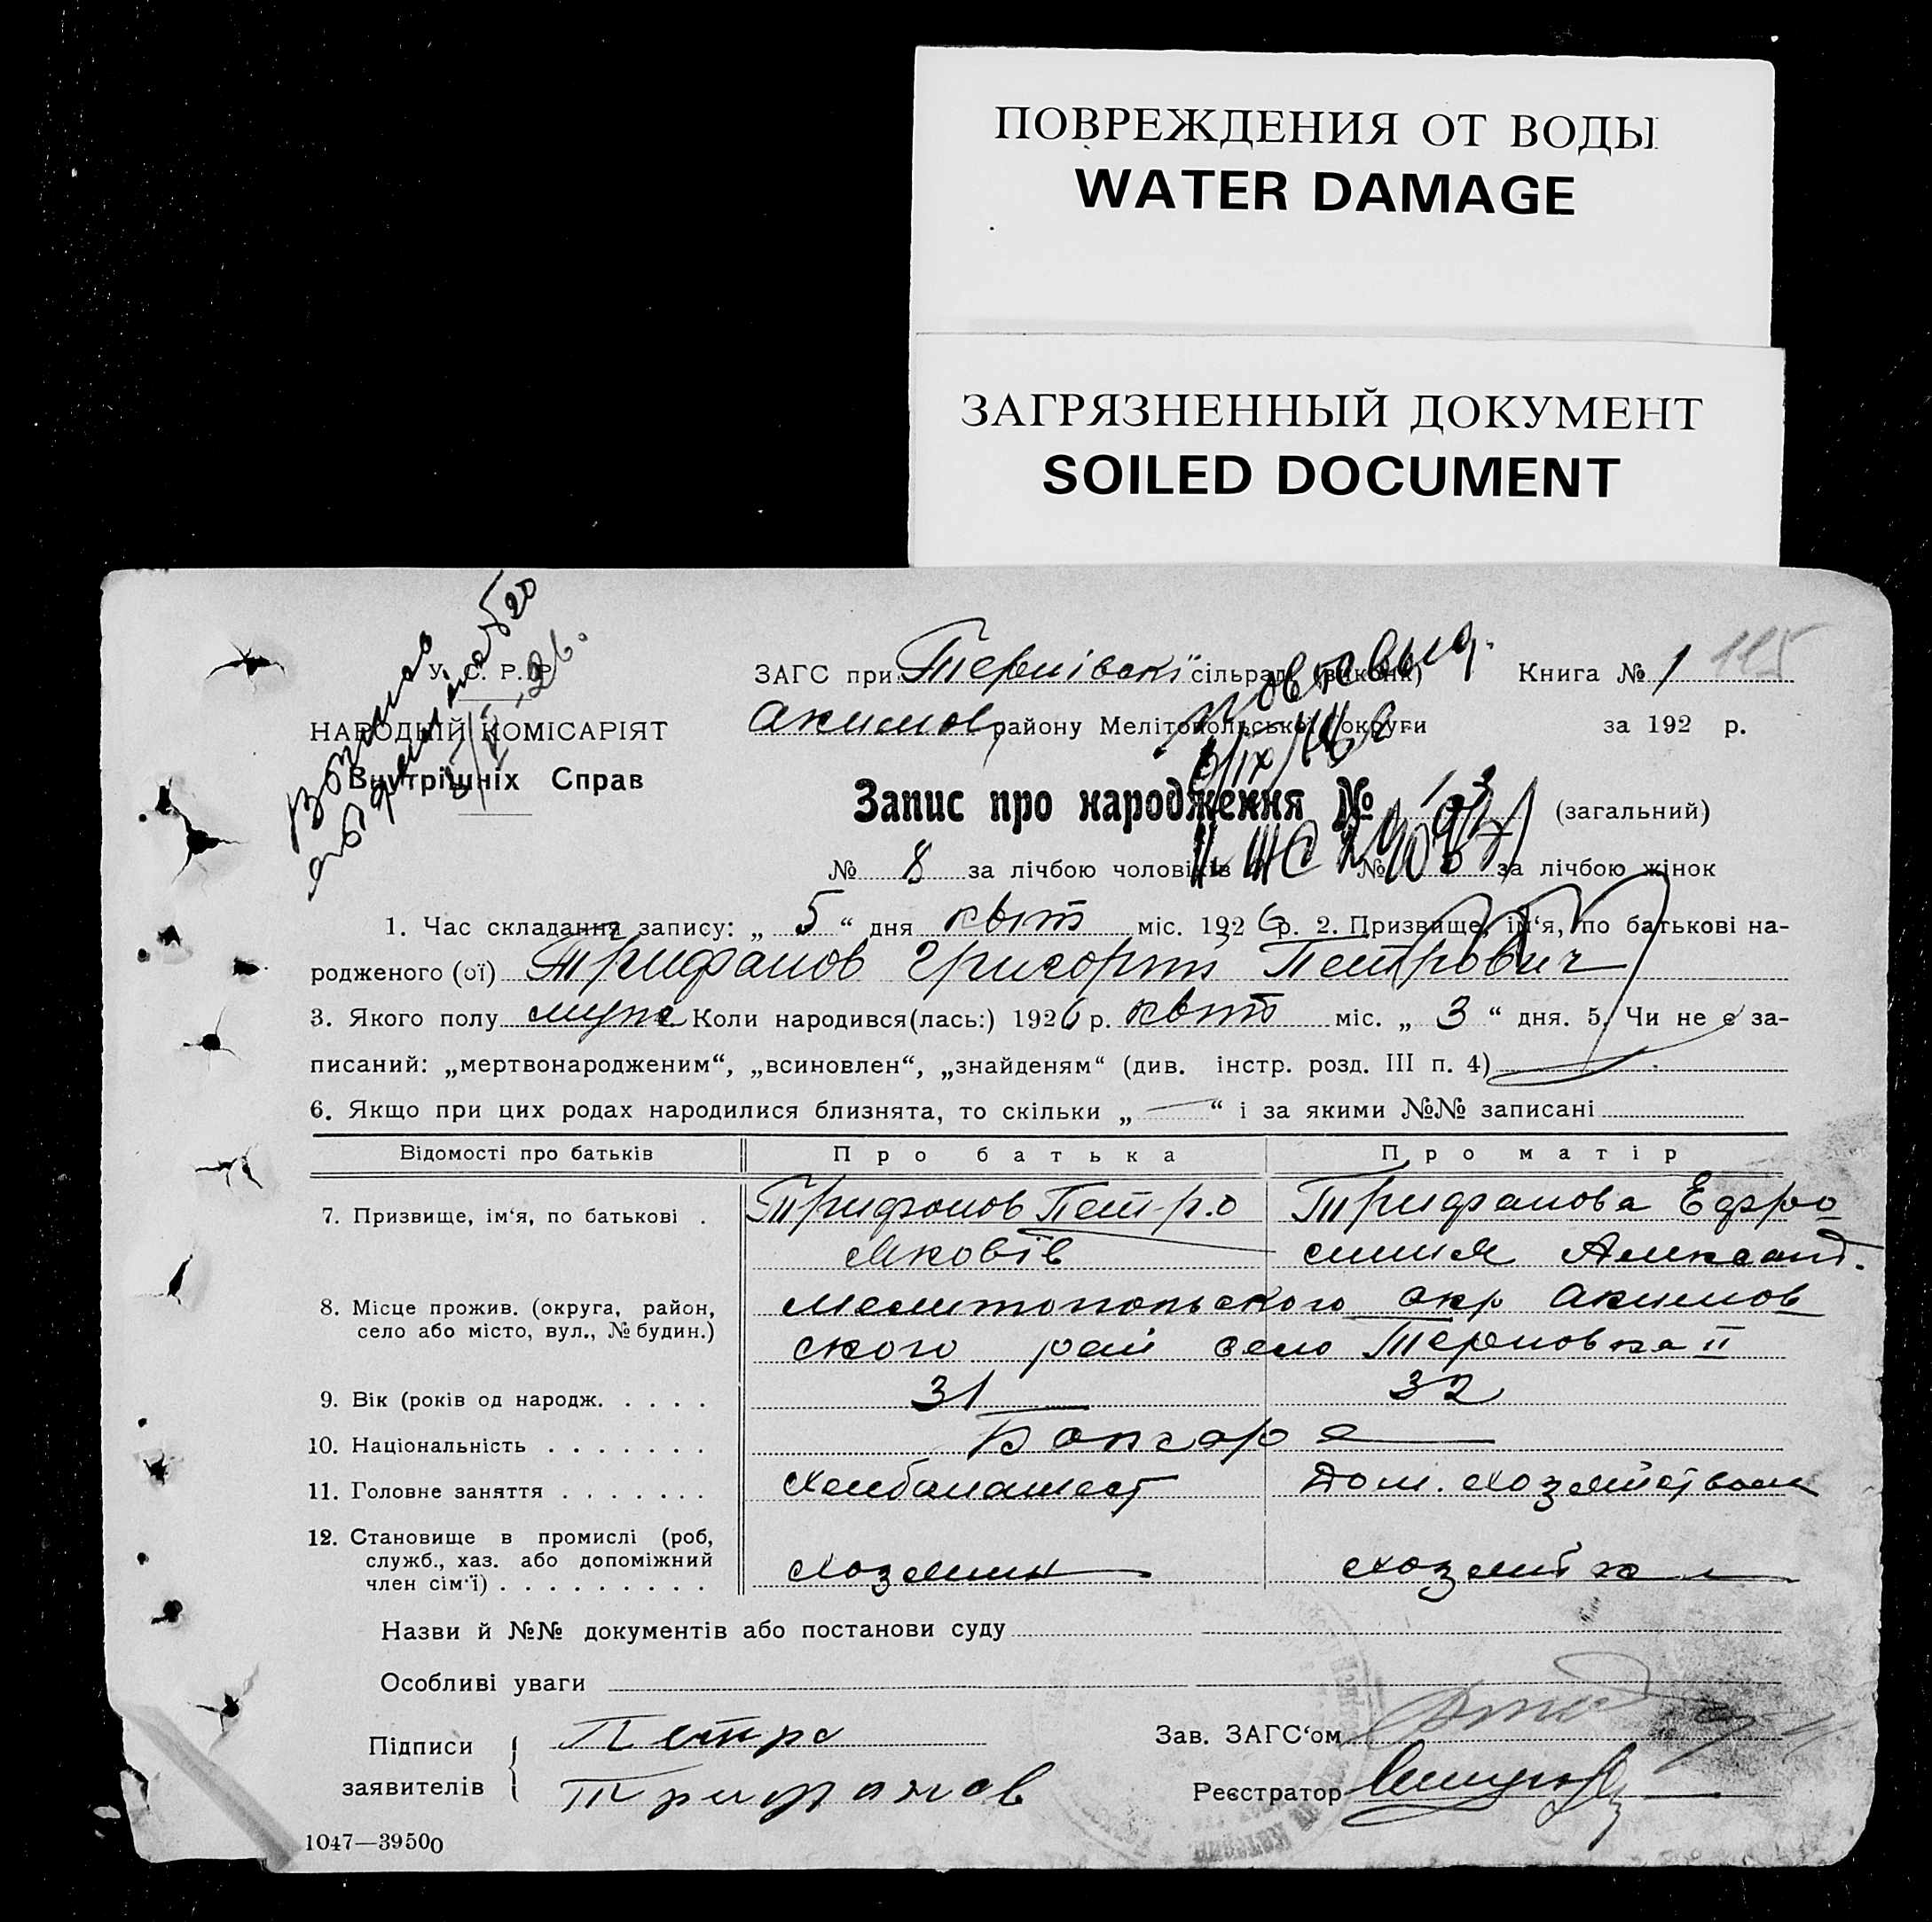 ПОВРЕЖДЕНИЯ ОТ ВОДЫ
WATER DAMAGE
ЗАГРЯЗНЕННЫЙ ДОКУМЕНТ
SOILED DOCUMENT
У. С. Р. Р.
НАРОДНІЙ КОМІСАРІЯТ
Внутрішніх Справ
ЗАГС при Тернівскі сільраді (виконк) Книга № 1 115
Акимов району Мелітопольської округи за 192 р.
Запис про народження № 13 (загальний)
№ 8 за лічбою чоловіків № за лічбою жінок
1. Час складання запису: „ 5 “ дня квіт міс. 1926 р. 2. Призвище, ім‘я, по батькові на-
родженого (ої) Трифанов Григорій Петрович
3. Якого полу муже Коли народився(лась:) 1926 р. квіт міс. „ 3 “ дня. 5. Чи не є за-
писаний: „мертвонародженим“, „всиновлен“, „знайденям“ (див. інстр. розд. III п. 4)
6. Якщо при цих родах народилися близнята, то скільки „ — “ і за якими №№ записані
Відомості про батьків Про батька Про матір
7. Призвище, ім‘я, по батькові . Трифонов Петро Трифанова Ефро
Яковів синия Александ.
8. Місце прожив. (округа, район, Мелитопольского окр Акимов
село або місто, вул., № будин.) ского рай село Терновка II
9. Вік (років од народж. . . . . 31 32
10. Національність . . . . . . . Болгаре
11. Головне заняття . . . . . . . Хлебопашест Дом. хозяйством
12. Становище в промислі (роб,
служб., хаз. або допоміжний хозяин хозяйка
член сім‘ї) . . . . . . . . .
Назви й №№ документів або постанови суду
Особливі уваги
Підписи Петро Зав. ЗАГС‘ом
заявителів Трифанов Реєстратор
1047—39500